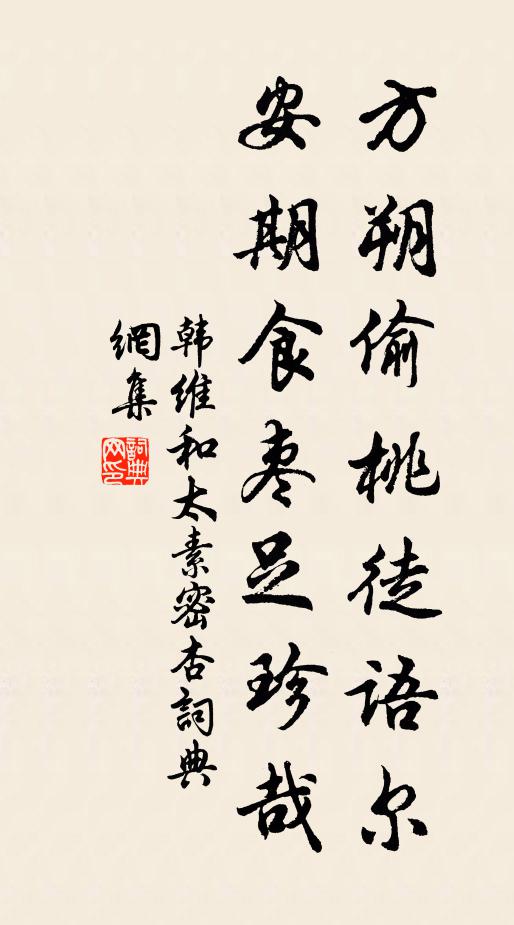 方朔偷桃徒语尔
安期食枣足珍哉
韩维和太素密杏詞典
網集
詞典網印